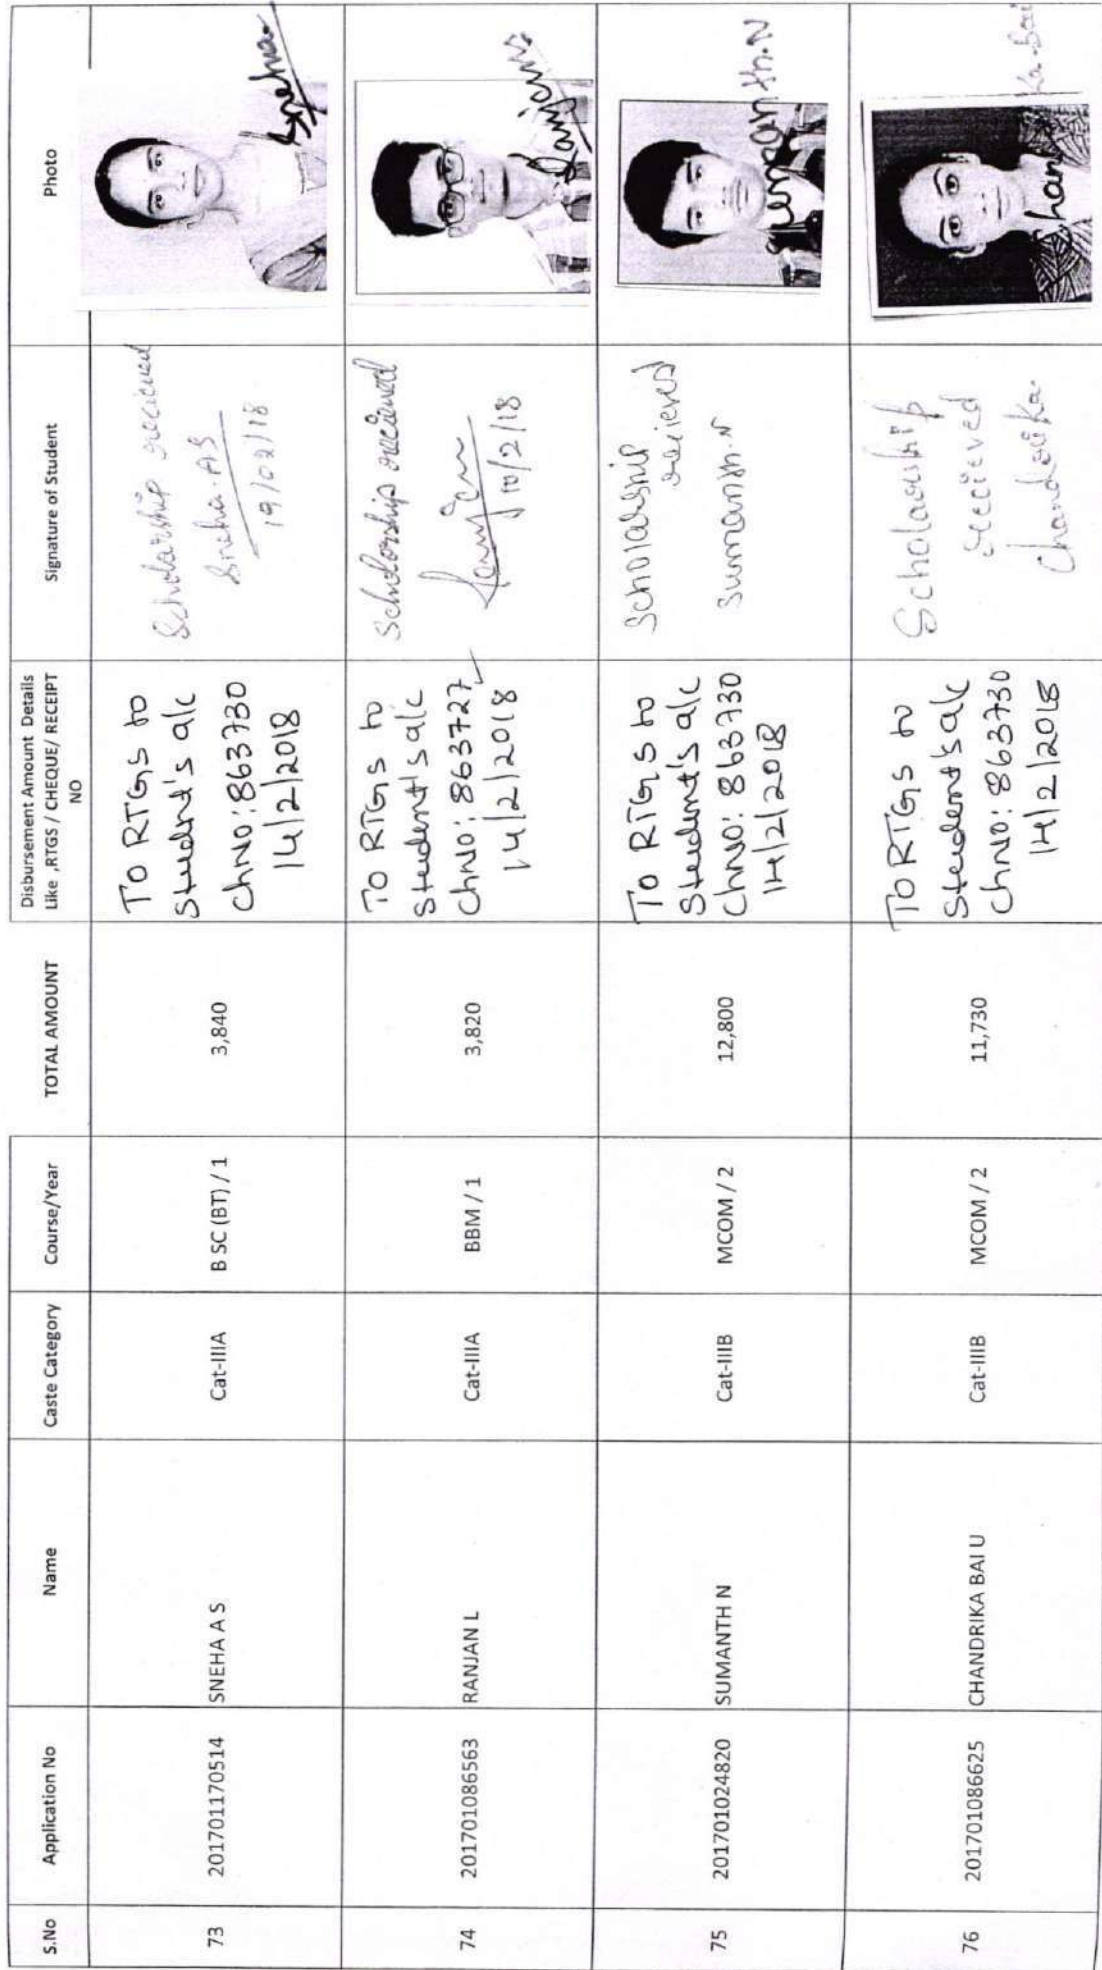 S.No
Application No
Name
Caste Category
Course/Year
TOTAL AMOUNT
Disbursement Amount Details
Like ,RTGS / CHEQUE/ RECEIPT
NO
Signature of Student
Photo
73
201701170514
SNEHA A S
Cat-IIIA
B SC (BT) / 1
3,840
TO RTGS to
Student's a/c
ChNO: 863730
14/2/2018
Scholarship recieved
Sneha.AS
19/02/18
Sneha
74
201701086563
RANJAN L
Cat-IIIA
BBM / 1
3,820
TO RTGS to
Student's a/c
ChNO: 863727
14/2/2018
Scholorship recieved
Ranjan
/2/18
75
201701024820
SUMANTH N
Cat-IIIB
MCOM / 2
12,800
TO RTGS to
Student's a/c
ChNO: 863730
14/2/2018
Scholarship
recieved
Sumanth.N
Sumanth.N
76
201701086625
CHANDRIKA BAI U
Cat-IIIB
MCOM / 2
11,730
TO RTGS to
Student's a/c
ChNO: 863730
14/2/2018
Scholarship
recieved
Chandrika